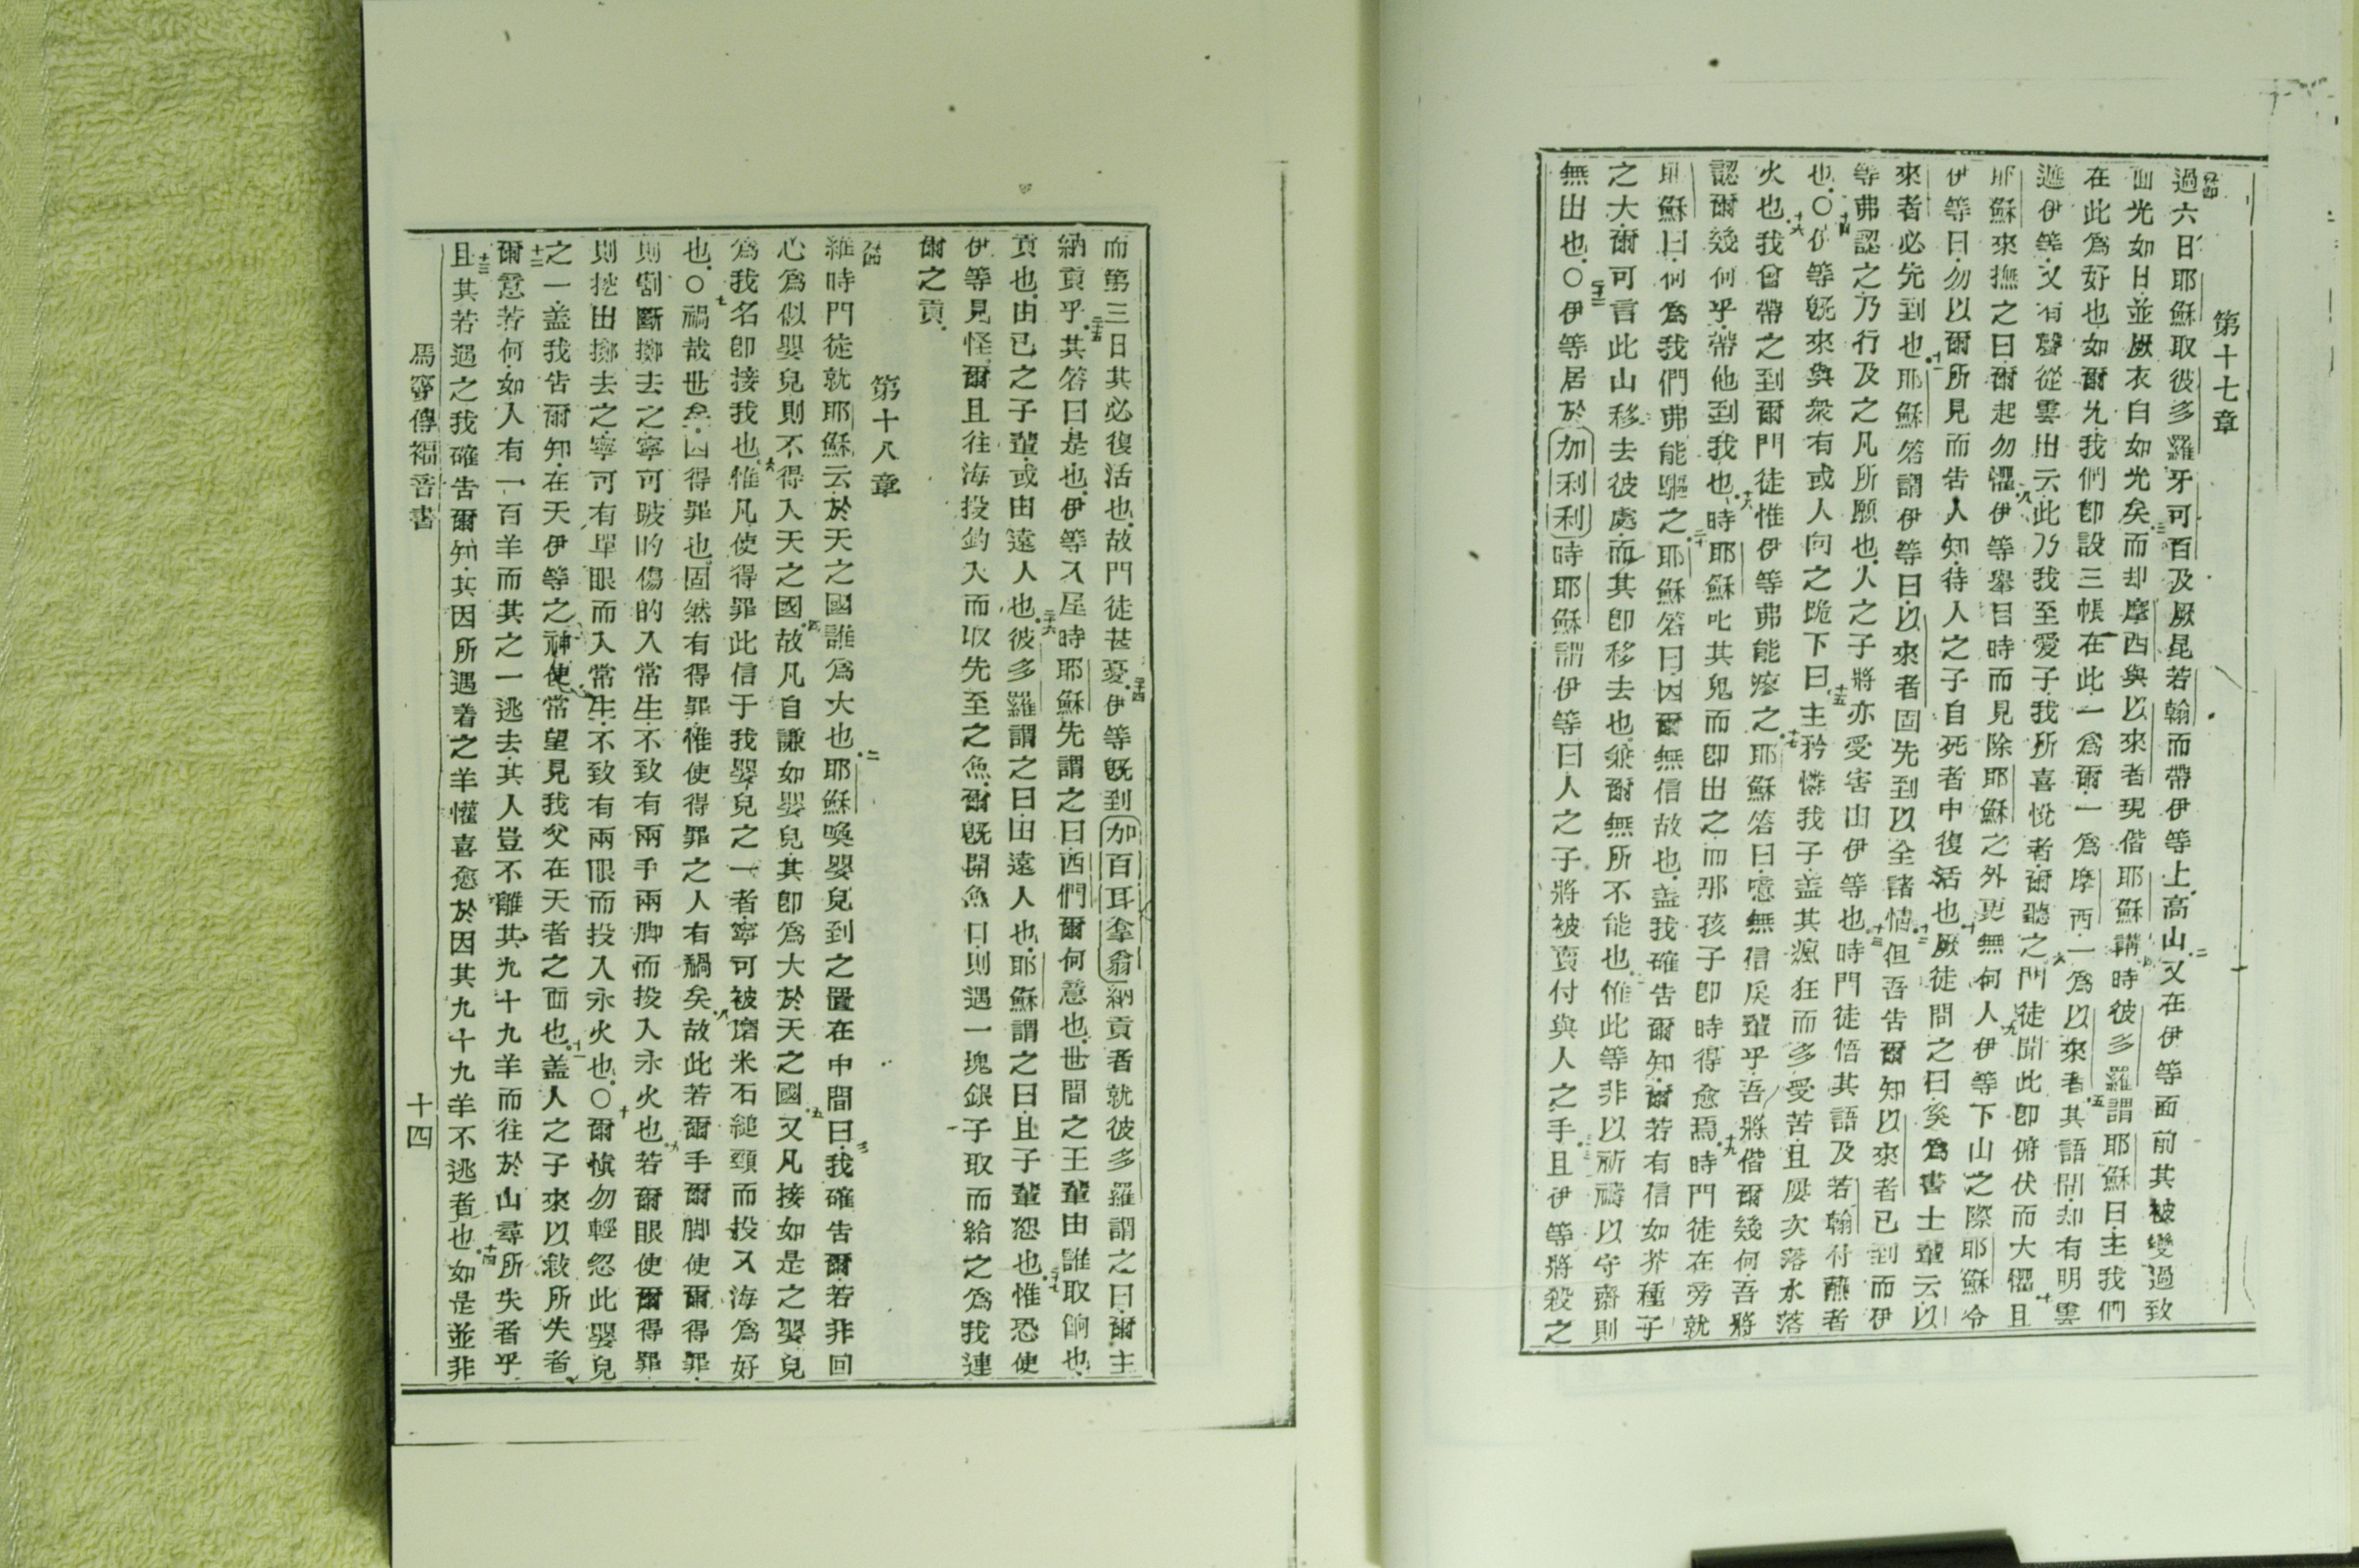 第十七章
過六日耶穌取彼多羅牙可百及厥昆若翰而帶伊等上高山又在伊等面前其被變過致
面光如日並厥衣白如光矣而却摩西與以來者現偕耶穌講時彼多羅謂耶穌曰主我們
在此為好也如爾允我們卽設三帳在此一為爾一為摩西一為以來者其語間却有明雲
遮伊等又有聲從雲出云此乃我至愛子我所喜悅者爾聽之門徒聞此卽俯伏而大懼且
耶穌來撫之曰爾起勿懼伊等舉目時而見除耶穌之外更無何人伊等下山之際耶穌令
伊等曰勿以爾所見而告人知待人之子自死者中復活也厥徒問之曰奚為書士輩云以
來者必先到也耶穌答謂伊等曰以來者固先到以全諸情但吾告爾知以來者已到而伊
等弗認之乃行及之凡所願也人之子將亦受害由伊等也時門徒悟其語及若翰付蘸者
也〇伊等旣來與衆有或人向之跪下曰主矜憐我子蓋其瘋狂而多受苦且屢次落水落
火也我曾帶之到爾門徒惟伊等弗能療之耶穌答曰噫無信戾輩乎吾將偕爾幾何吾將
認爾幾何乎帶他到我也時耶穌叱其鬼而卽出之而那孩子卽時得愈焉時門徒在旁就
耶穌曰何為我們弗能驅之耶穌答曰因爾無信故也蓋我確告爾知爾若有信如芥種子
之大爾可言此山移去彼處而其卽移去也兼爾無所不能也惟此等非以祈禱以守齋則
無出也〇伊等居於加利利時耶穌謂伊等曰人之子將被賣付與人之手且伊等將殺之
而第三日其必復活也故門徒甚憂伊等旣到加百耳拿翁納貢者就彼多羅謂之曰爾主
納貢乎其答曰是也伊等入屋時耶穌先謂之曰西們爾何意也世間之王輩由誰取餉也
貢也由己之子輩或由遠人也彼多羅謂之曰由遠人也耶穌謂之曰且子輩恕也惟恐使
伊等見怪爾且往海投釣入而取先至之魚爾旣開魚口則遇一塊銀子取而給之為我連
爾之貢
第十八章
維時門徒就耶穌云於天之國誰為大也耶穌喚嬰兒到之置在中間曰我確告爾若非回
心為似嬰兒則不得入天之國故凡自謙如嬰兒其卽為大於天之國又凡接如是之嬰兒
為我名卽接我也惟凡使得罪此信于我嬰兒之一者寧可被磨米石縋頸而投入海為好
也〇禍哉世矣因得罪也固然有得罪惟使得罪之人有禍矣故此若爾手爾脚使爾得罪
則割斷擲去之寧可跛的傷的入常生不致有兩手兩脚而投入永火也若爾眼使爾得罪
則挖出擲去之寧可有單眼而入常生不致有兩眼而投入永火也〇爾愼勿輕忽此嬰兒
之一蓋我告爾知在天伊等之神使常望見我父在天者之面也蓋人之子來以救所失者
爾意若何如人有一百羊而其之一逃去其人豈不離其九十九羊而往於山尋所失者乎
且其若遇之我確告爾知其因所遇着之羊懽喜愈於因其九十九羊不逃者也如是並非
馬竇傳福音書
十四